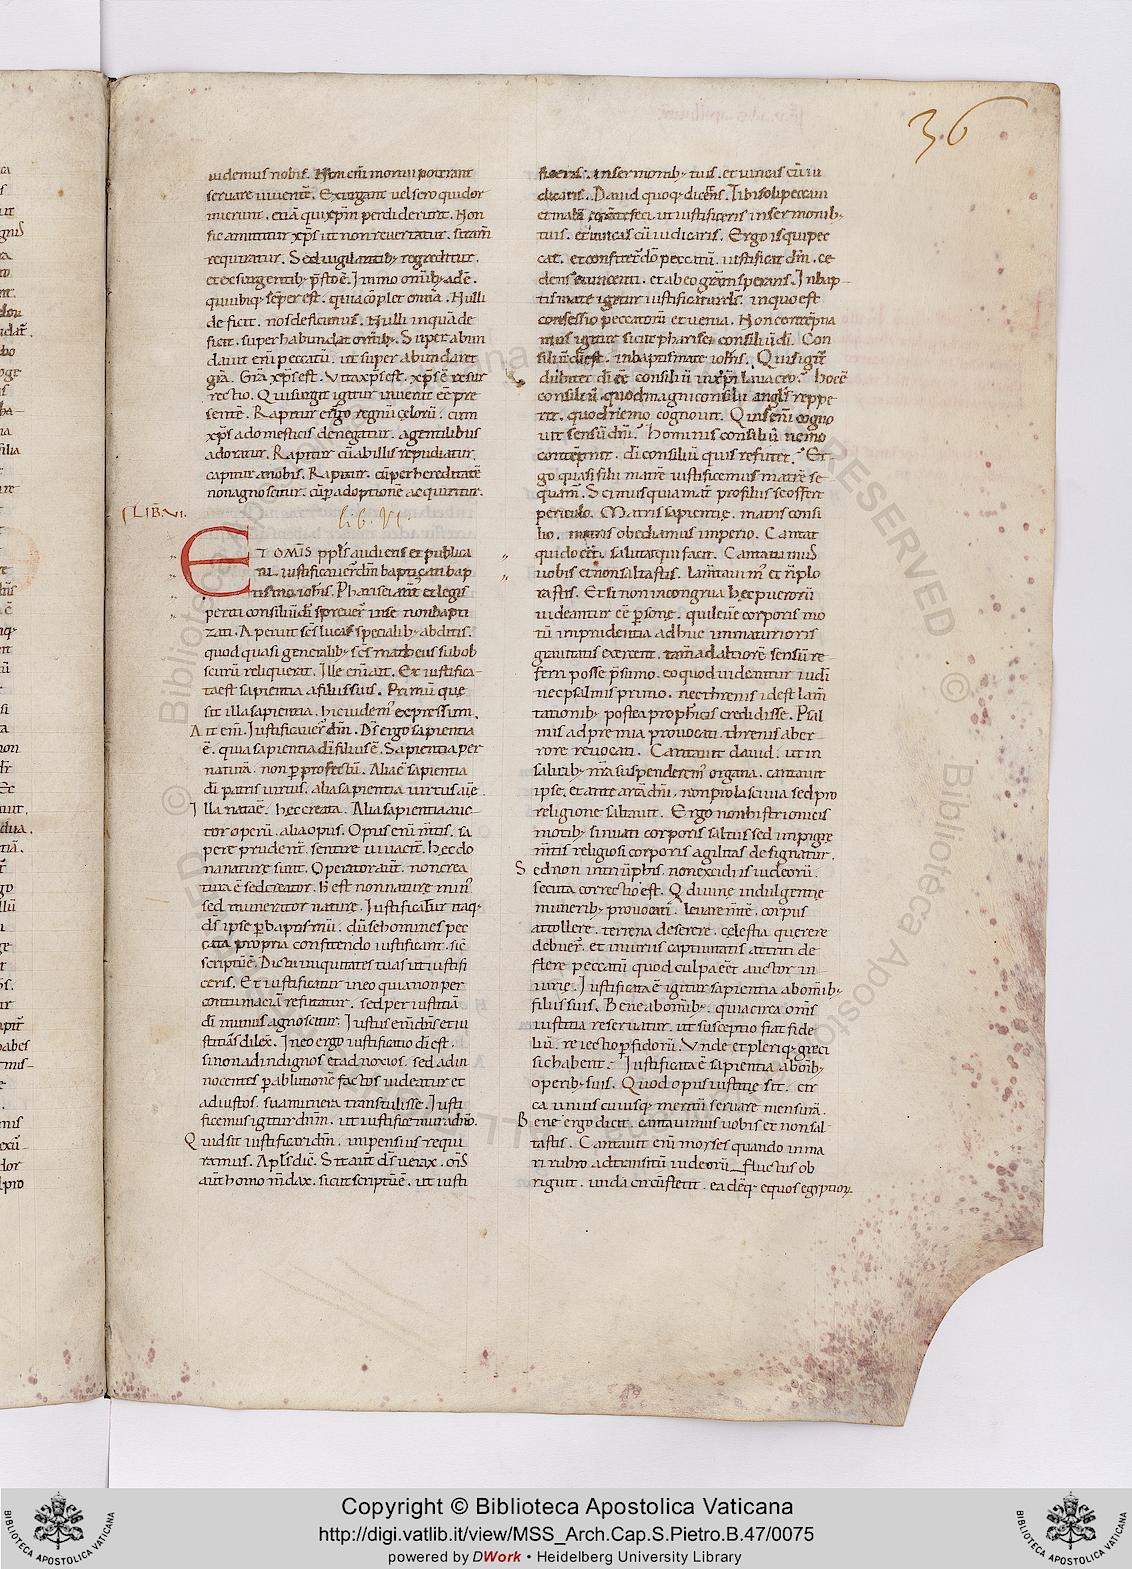 36
uidemus nobis. Non enī mortui poterant
seruare uiuentē. Exurgant uel sero qui dor
mierunt. etiā qui xp̄m perdiderunt. Non
sic amittitur xp̄s ut non reuertatur. si tam̄
requiratur. Sed uigilantib; regreditur.
et exsurgentib; p̄sto ē. Immo om̄ib; adē.
qui ubiq; sēper est. quia cōplet omīa. Nulli
deficit. nos deficimus. Nulli inquā de
ficit. super habundat omīb;. Super abun
dauit enī peccatū. ut super abundaret
gr̄a. Gr̄a xp̄s est. Vita xp̄s est. xp̄s ē resur
rectio. Qui surgit igitur inuenit eē pre
sentē. Rapitur ergo regnū celorū. cum
xp̄s a domesticis denegatur. a gentilibus
adoratur. Rapitur cū ab illis repudiatur.
capitur a nobis. Rapitur. cū per hereditatē
non agnoscitur. cū p adoptionē acquiritur.
LIB. VI.
lib. VI.
ET OMĪS ppl̄s audiens et publica
ni. iustificauer̄ dm̄ baptizati bap
tismo ioh̄is. Pharisei aūt et legis
periti consiliū dī spreuer̄ in se non bapti
zati. Aperuit sc̄s lucas specialib; abditis.
quod quasi generalib; sc̄s matheus sub ob
scurū reliquerat. Ille enī ait. Et iustifica
ta est sapientia a filiis suis. Primū que
sit illa sapientia. hic uidem' expressum.
Ait enī. Iustificauer̄ dm̄. Ds̄ ergo sapientia
ē. quia sapientia dī filius ē. Sapientia per
naturā. non p profectū. Alia ē sapientia
dī patris uirtus. alia sapientia uirtus aīe.
Illa nata ē. hęc creata. Alia sapientia auc
tor operū. alia opus. Opus enī m̄tis. sa
pere prudent̄. sentire uiuacit̄. hęc do
na naturę sunt. Operator aūt. non crea
tura ē sed creator. hic est non naturę mun'
sed munerator naturę. Iustificatur itaq;
ds̄ ipse p baptismū. dū se homines pec
cata propria confitendo iustificant. sic̄
scriptū ē. Dic tu iniquitates tuas ut iustifi
ceris. Et iustificatur in eo quia non per
contumaciā refutatur. sed per iustitiā
dī munus agnoscitur. Iustus enī dn̄s et iu
stitiās dilex̄. In eo ergo iustificatio dī est.
si non ad indignos et ad noxios. sed ad in
nocentes p ablutionē factos uideatur et
ad iustos. sua munera transtulisse. Iusti
ficemus igitur dn̄m. ut iustificemur a dn̄o.
Quid sit iustificari dm̄. inpensius requi
ramus. Apl̄s dic̄. Sit aūt ds̄ uerax. om̄s
aūt homo m̄dax. sicut scriptū ē. ut iusti
ficeris. in sermonib; tuis. et uincas cū iu
dicaris. Dauid quoq; dicens. Tibi soli peccaui
et malū corā te feci. ut iustificeris in sermonib;
tuis. et uincas cū iudicaris. Ergo is qui pec
cat. et confitet̄ dō peccatū. iustificat dm̄. ce
dens ei uincenti. et ab eo grām sperans. In bap
tismate igitur iustificatur ds̄. in quo est
confessio peccatorū et uenia. Non contēpna
mus igitur sicut pharisei consiliū dī. Con
siliū dī est. in baptismate ioh̄is. Quis igit̄
dubitet dī eē consiliū in xp̄i lauacro. hoc ē
consiliū. quod magni consilii angl̄s reppe
rit. quod nemo cognouit. Quis enī cogno
uit sensū dn̄i. Hominis consiliū nemo
contēpnit. dī consiliū quis refutet. Er
go quasi filii matrē iustificemus matrē se
quam̄. Scimus quia mat̄ pro filiis se offert
periculo. Matris sapientię. matris consi
lio. matris obediamus imperio. Cantat
qui docet. saltat qui facit. Cantauimus
uobis et non saltastis. lam̄tauim' et n̄ plo
rastis. Et si non incongrua hęc puerorū
uideantur eē psonę. qui leue corporis mo
tū imprudentia adhuc inmaturioris
grauitatis exercent. tam̄ ad altiorē sensū re
ferri posse p̄sumo. eo quod uideantur iudei
nec psalmis primo. nec threnis id est lam̄
tationib; postea prophēticis credidisse. Psal
mis ad premia prouocati. threnis ab er
rore reuocati. Cantauit dauid. ut in
salicib; nr̄a suspenderem' organa. cantauit
ipse. et ante arcā dn̄i. non pro lasciuia sed pro
religione saltauit. Ergo non histrionicis
motib; sinuati corporis saltus sed impigrę
m̄tis religiosi corporis agilitas designatur.
Sed non
secuta correctio est. Q divinę indulgentię
muneribus prouocati. leuare m̄tē. corpus
attollere. terrena deserere. celestia querere
debuer̄. et iniuriis captiuitatis attriti de
flere peccatū quod culpa eēt auctor in
iurię. Iustificata ē igitur sapientia ab om̄ib;
filiis suis. Bene ab om̄ib;. quia circa om̄s
iustitia reseruatur. ut susceptio fiat fide
liū. reiectio pfidorū. Unde et pleriq; greci
sic habent. Iustificata ē sapientia ab om̄ib;
operib; suis. Quod opus iustitię sit. cir
ca unius cuiusq; meritū seruare mensurā.
Bene ergo dicit. cantauimus uobis et non sal
tastis. Cantauit enī moyses quando in ma
ri rubro. ad transitū iudeorū fluctus ob
riguit. unda circūstetit. eadēq; equos egyptior
Copyright © Biblioteca Apostolica Vaticana
http://digi.vatlib.it/view/MSS_Arch.Cap.S.Pietro.B.47/0075
powered by DWork • Heidelberg University Library
BIBLIOTECA APOSTOLICA VATICANA
BIBLIOTECA APOSTOLICA VATICANA